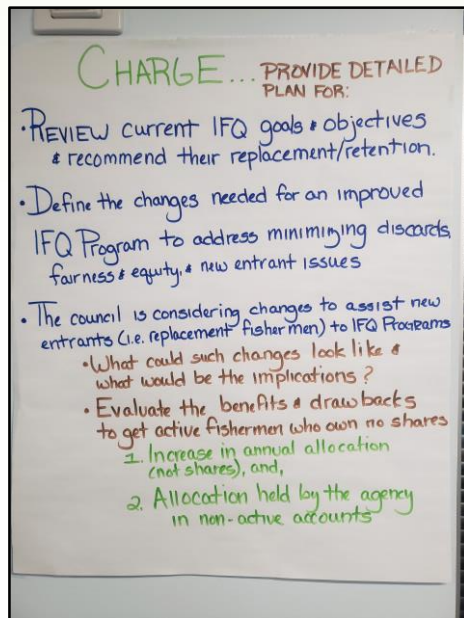 CHARGE... PROVIDE DETAILED
PLAN FOR:
• REVIEW current IFQ goals & objectives
& recommend their replacement/retention.
• Define the changes needed for an improved
IFQ Program to address minimizing discards,
fairness & equity, & new entrant issues
• The council is considering changes to assist new
entrants (i.e. replacement fishermen) to IFQ Programs
• What could such changes look like &
what would be the implications?
• Evaluate the benefits & drawbacks
to get active fishermen who own no shares
1. Increase in annual allocation
(not shares), and,
2. Allocation held by the agency
in non-active accounts